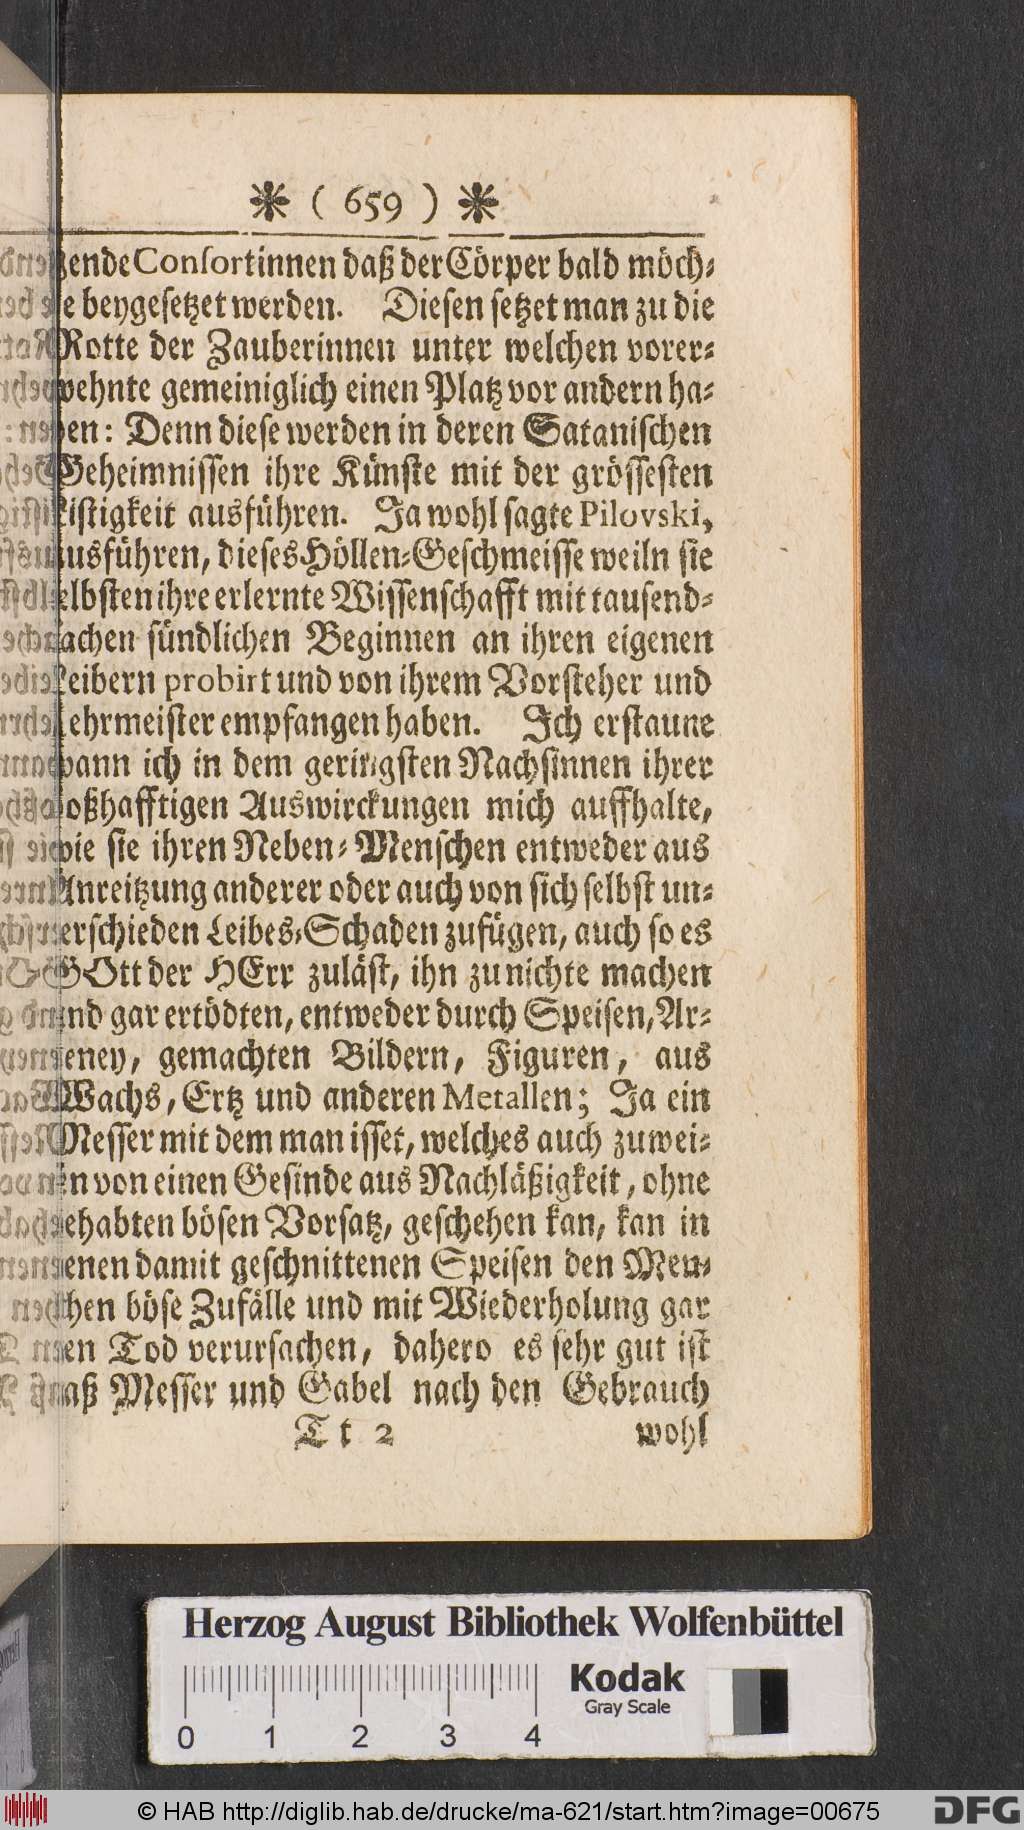 * ( 659 ) *
ende Consortinnen daß der Cörper bald möch⸗
te beygesetzet werden. Diesen setzet man zu die
Rotte der Zauberinnen unter welchen vorer⸗
wehnte gemeiniglich einen Platz vor andern ha⸗
ben: Denn diese werden in deren Satanischen
Geheimnissen ihre Künste mit der grössesten
Listigkeit ausführen. Ja wohl sagte Pilovski,
ausführen, dieses Höllen⸗Geschmeisse weiln sie
selbsten ihre erlernte Wissenschafft mit tausend⸗
fachen sündlichen Beginnen an ihren eigenen
Leibern probirt und von ihrem Vorsteher und
Lehrmeister empfangen haben. Ich erstaune
wann ich in dem geringsten Nachsinnen ihrer
boßhafftigen Auswirckungen mich auffhalte,
wie sie ihren Neben⸗Menschen entweder aus
Anreitzung anderer oder auch von sich selbst un⸗
terschieden Leibes⸗Schaden zufügen, auch so es
GOtt der HErr zuläst, ihn zu nichte machen
und gar ertödten, entweder durch Speisen, Ar⸗
tzeney, gemachten Bildern, Figuren, aus
Wachs, Ertz und anderen Metallen; Ja ein
Messer mit dem man isset, welches auch zuwei⸗
len von einen Gesinde aus Nachläßigkeit, ohne
gehabten bösen Vorsatz, geschehen kan, kan in
denen damit geschnittenen Speisen den Men⸗
schen böse Zufälle und mit Wiederholung gar
den Tod verursachen, dahero es sehr gut ist
daß Messer und Gabel nach den Gebrauch
Tt 2 wohl
Herzog August Bibliothek Wolfenbüttel
Kodak
Gray Scale
0 1 2 3 4
© HAB http://diglib.hab.de/drucke/ma-621/start.htm?image=00675
DFG